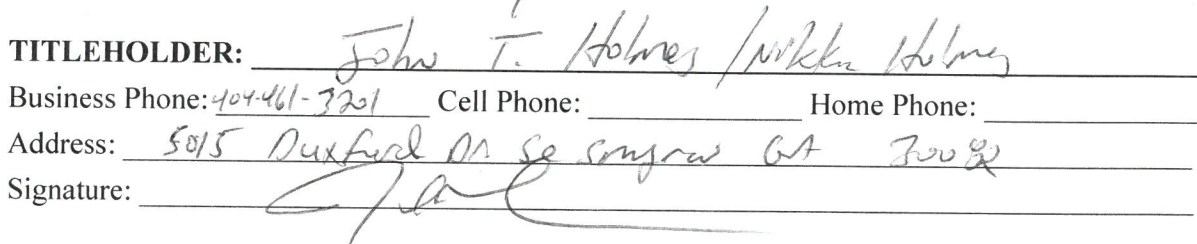 TITLEHOLDER: John T. Holmes / Nikki Holmes
Business Phone: 404-461-3201 Cell Phone: Home Phone:
Address: 5015 Duxford Dr Se Smyrna GA
Signature: